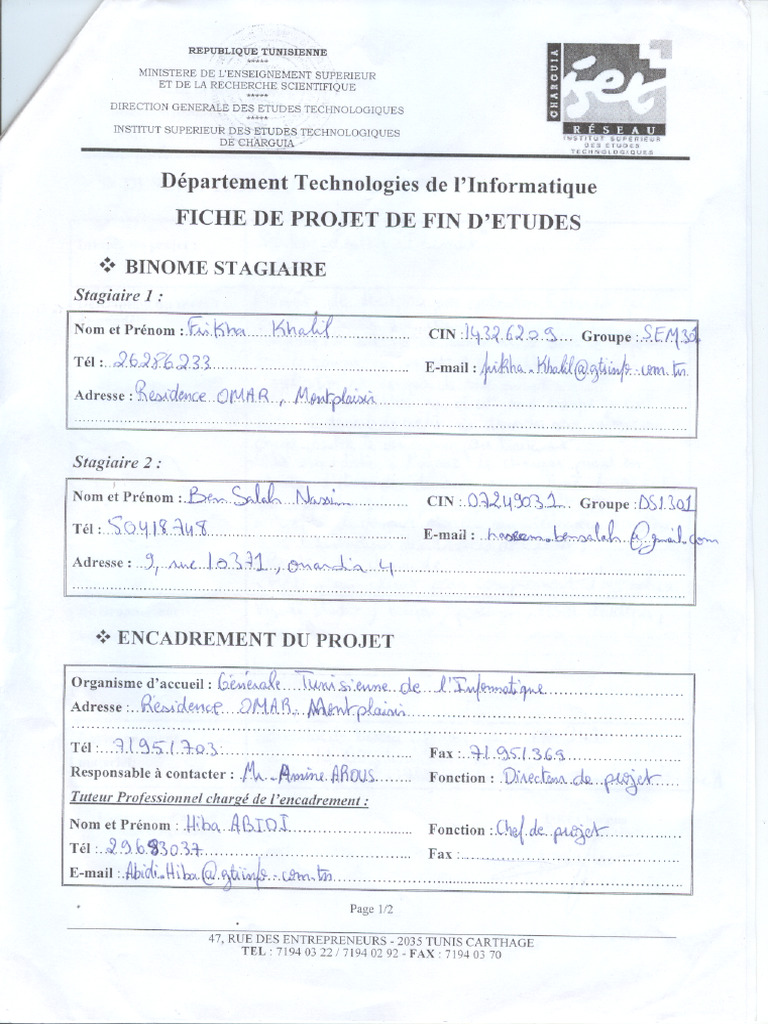 REPUBLIQUE TUNISIENNE
*****
MINISTERE DE L'ENSEIGNEMENT SUPERIEUR
ET DE LA RECHERCHE SCIENTIFIQUE
*****
DIRECTION GENERALE DES ETUDES TECHNOLOGIQUES
*****
INSTITUT SUPERIEUR DES ETUDES TECHNOLOGIQUES
DE CHARGUIA
CHARGUIA
iset
RÉSEAU
INSTITUT SUPERIEUR
DES ETUDES
TECHNOLOGIQUES
Département Technologies de l'Informatique
FICHE DE PROJET DE FIN D'ETUDES
❖ BINOME STAGIAIRE
Stagiaire 1 :
Nom et Prénom : Frikha Khalil CIN : 14326209 Groupe : SEM31
Tél : 26286233 E-mail : frikha.Khalil@gtiinfo.com.tn
Adresse : Residence OMAR, Montplaisir
Stagiaire 2 :
Nom et Prénom : Ben Salah Nassim CIN : 07249031 Groupe : DSI301
Tél : 50418748 E-mail : @gmail.com
Adresse : 9, rue 10371, omandia 4
❖ ENCADREMENT DU PROJET
Organisme d'accueil : Générale Tunisienne de l'Informatique
Adresse : Résidence OMAR Montplaisir
Tél : 71951703 Fax : 71951369
Responsable à contacter : Mr. Amine AROUS Fonction : Directeur de projet
Tuteur Professionnel chargé de l'encadrement :
Nom et Prénom : Hiba ABIDI Fonction : Chef de projet
Tél : 29683037 Fax :
E-mail : Abidi.Hiba@gtiinfo.com.tn
Page 1/2
47, RUE DES ENTREPRENEURS - 2035 TUNIS CARTHAGE
TEL : 7194 03 22 / 7194 02 92 - FAX : 7194 03 70